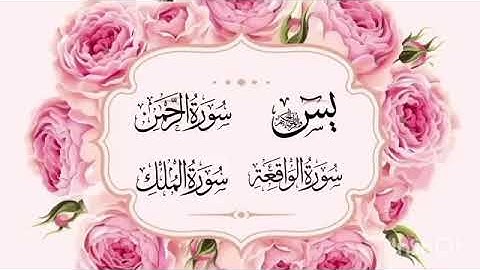 يسٓ سُورَةُ الرَّحْمٰن
سُورَةُ الوَاقِعَة سُورَةُ المُلْكِ